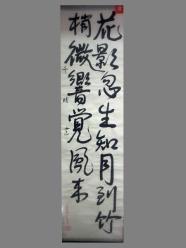 花影忽生知月到竹
梢微響覺風来